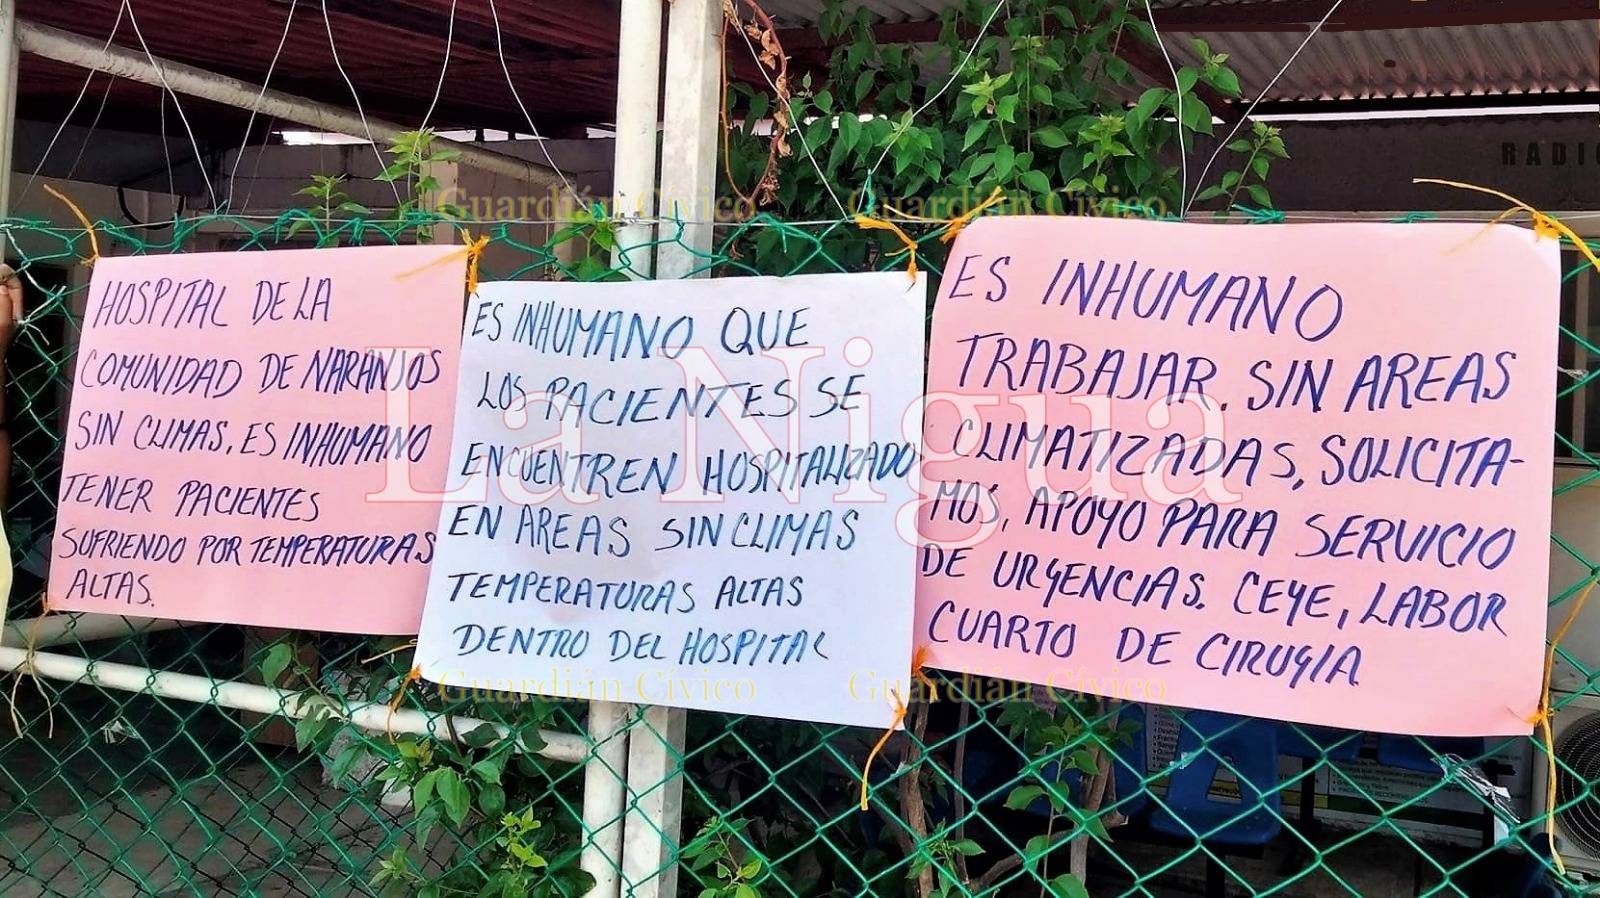 HOSPITAL DE LA
COMUNIDAD DE NARANJOS
SIN CLIMAS, ES INHUMANO
TENER PACIENTES
SUFRIENDO POR TEMPERATURAS
ALTAS.
ES INHUMANO QUE
LOS PACIENTES SE
ENCUENTREN HOSPITALIZADO
EN AREAS SIN CLIMAS
TEMPERATURAS ALTAS
DENTRO DEL HOSPITAL
ES INHUMANO
TRABAJAR. SIN AREAS
CLIMATIZADAS, SOLICITA-
MOS, APOYO PARA SERVICIO
DE URGENCIAS. CEYE, LABOR
CUARTO DE CIRUGIA
RADIO
La Nigua
Guardián Cívico
Guardián Cívico
Guardián Cívico
Guardián Cívico